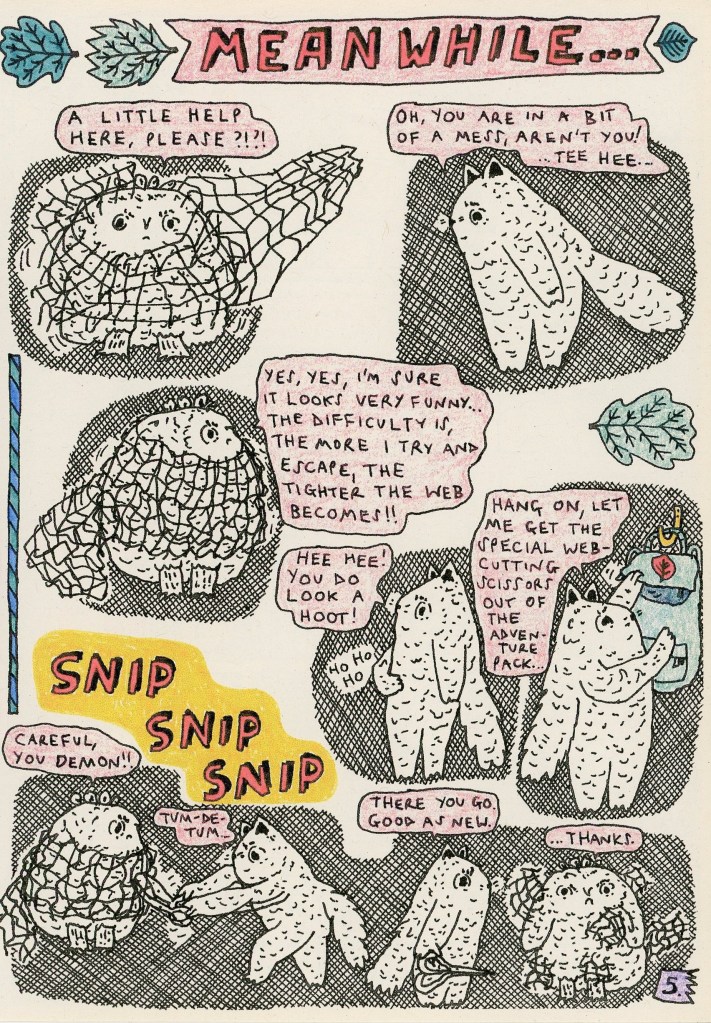 MEANWHILE...
A LITTLE HELP
HERE, PLEASE ?!?!
OH, YOU ARE IN A BIT
OF A MESS, AREN'T YOU!
...TEE HEE...
YES, YES, I'M SURE
IT LOOKS VERY FUNNY...
THE DIFFICULTY IS,
THE MORE I TRY AND
ESCAPE, THE
TIGHTER THE WEB
BECOMES!!
HEE HEE!
YOU DO
LOOK A
HOOT!
HO HO
HO HO
HO
HANG ON, LET
ME GET THE
SPECIAL WEB-
CUTTING
SCISSORS
OUT OF
THE
ADVEN-
TURE
PACK...
SNIP
SNIP
SNIP
CAREFUL,
YOU DEMON!!
TUM-DE-
TUM...
THERE YOU GO.
GOOD AS NEW.
...THANKS.
5.